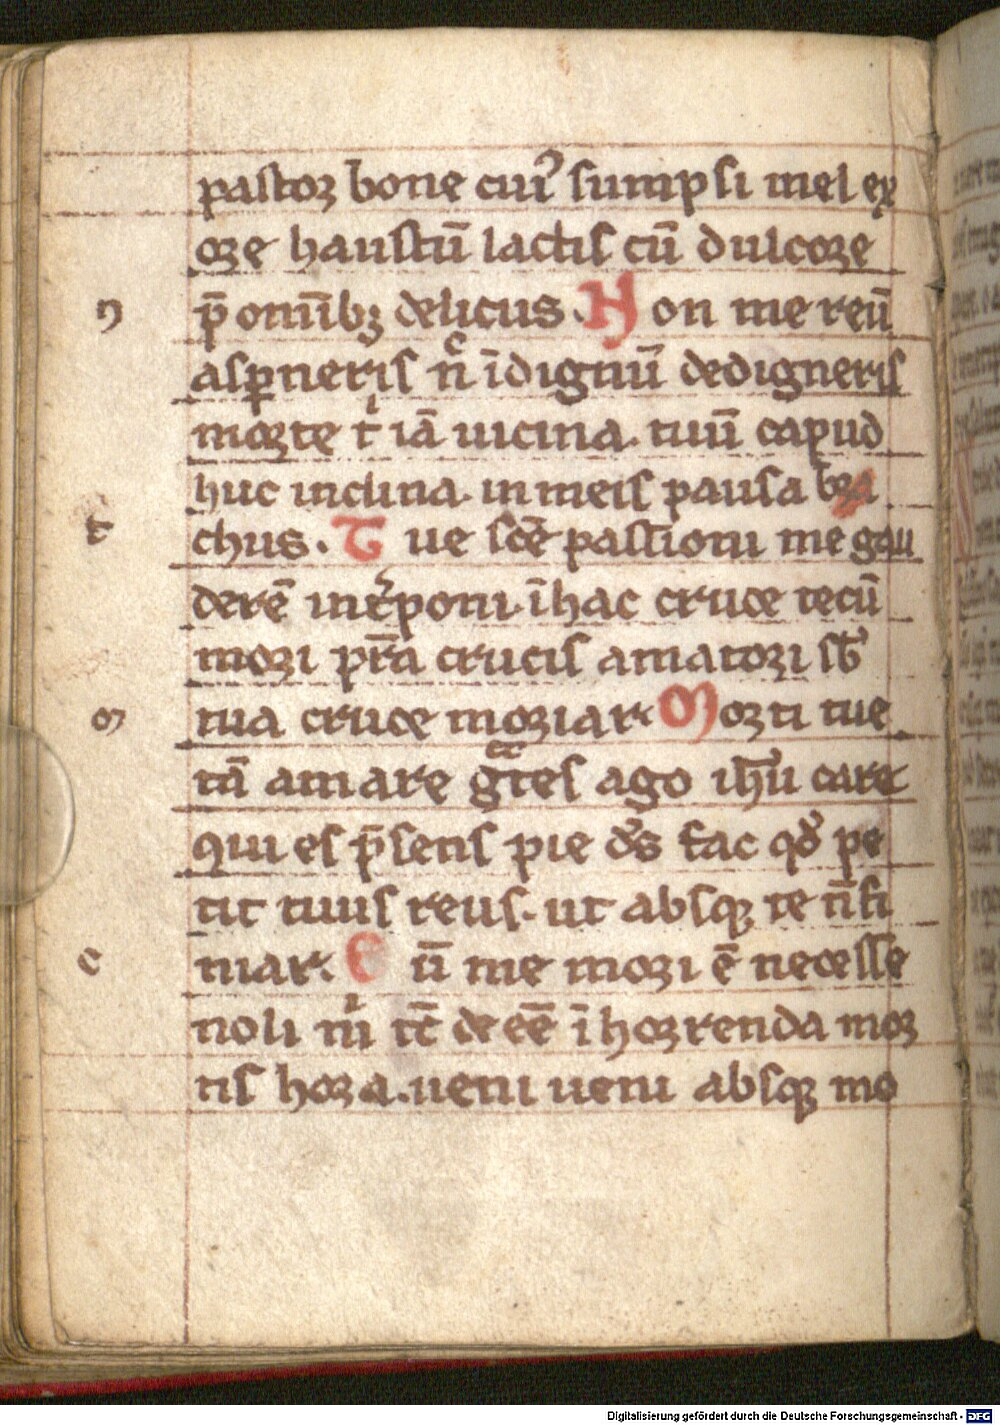 pastor bone cui᾽ sumpsi mel ex
ore haustū lactis cū dulcore
p̄ omnib; delicus. Non me reū
n
asp̱neris nͨ īdignū dedigneris
morte tͥ iā uicina. tuū capud
huc inclina. in meis pausa bra
chus. Tue scē passioni me gau
t
derē int̾poni. ī hac cruce tecū
mori pr̄a crucis amatori sb̾
tua cruce moriar. Morti tue
m
tā amare gͣtes ago ih̄u care
qui es p̄sens pie ds̄ fac qd̾ pe
tit tuus reus. ut absq₃ te n̄ fi
niar. Cū me mori ē necesse
c
noli mͥ tc̄ deeē ī horrenda mor
tis hora. ueni ueni absq₃ mo
Digitalisierung gefördert durch die Deutsche Forschungsgemeinschaft - DFG